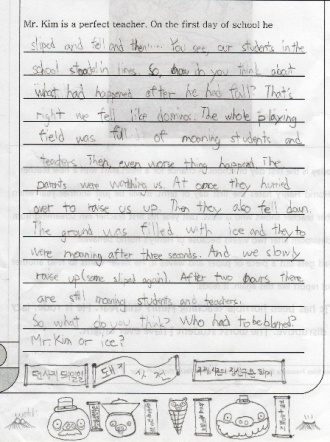 Mr. Kim is a perfect teacher. On the first day of school he
sliped and fell and then..... You see, our students in the
school stand in lines. So, how do you think about
what had happened after he had fall? That's
right we fell like dominos. The whole playing
field was full of moaning students and
teachers. Then, even worse thing happend. The
parents were wathing us. At once they hurried
over to raise us up. Then they also fell down.
The ground was filled with ice and they to
were moaning after three seconds. And we slowly
raise up (some sliped again). After two hours there
are still moaning students and teachers.
So what do you think? Who had to be blamed?
Mr. Kim or ice?
돼지 사전